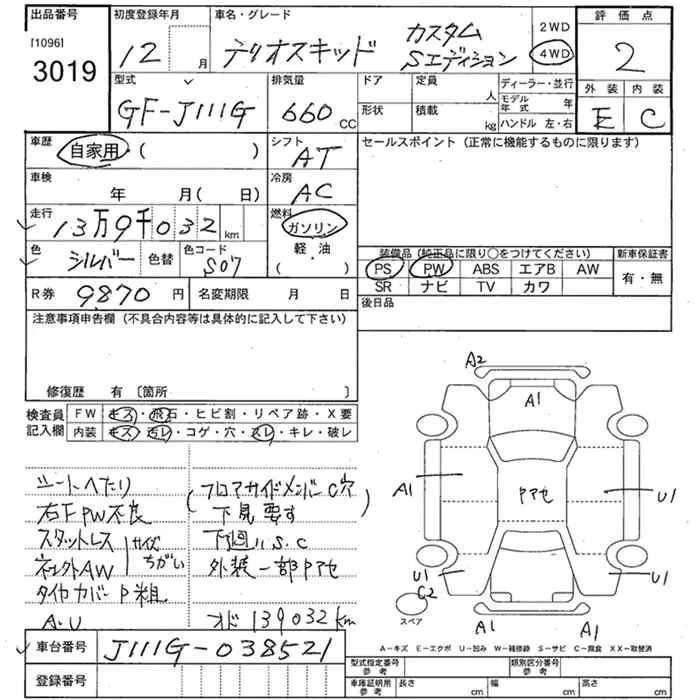 出品番号
[1096]
3019
初度登録年月
12 月
車名・グレード
テリオスキッド カスタム Sエディション
2WD
4WD
評価点
2
外装 内装
E C
型式
GF-J111G
排気量
660 CC
ドア
定員
人
形状
積載
kg
ディーラー・並行
モデル年式 年
ハンドル 左・右
車歴
自家用 ( )
シフト
AT
セールスポイント (正常に機能するものに限ります)
車検
年 月(日)
冷房
AC
走行
13万9千032 km
燃料
ガソリン
軽・油
( )
色
シルバー
色替
色コード
S07
装備品(純正品に限り○をつけてください)
新車保証書
PS PW ABS エアB AW
有・無
SR ナビ TV カワ
R券 9870 円
名変期限 月 日
後日品
注意事項申告欄 (不具合内容等は具体的に記入して下さい)
修復歴 有 〔箇所 〕
検査員記入欄
FW キズ・飛石・ヒビ割・リペア跡・X要
内装 キズ・汚レ・コゲ・穴・スレ・キレ・破レ
シートへたり
右FPW不良
スタットレス
ネジ外AW
サイズちがい
タイヤカバーP粗
A・U
(フロアサイドメンバーC穴)
下見要す
下廻りS.C
外装一部Pアセ
オド139032km
A2
A1
A1
Pアセ
U1
U1
C2
U1
A1
A1
スペア
A-キズ E-エクボ U-凹み W-補修跡 S-サビ C-腐食 XX-取替済
車台番号
J111G-038521
登録番号
型式指定番号
参考
類別区分番号
参考
車庫証明用
参考
長さ cm
幅 cm
高さ cm